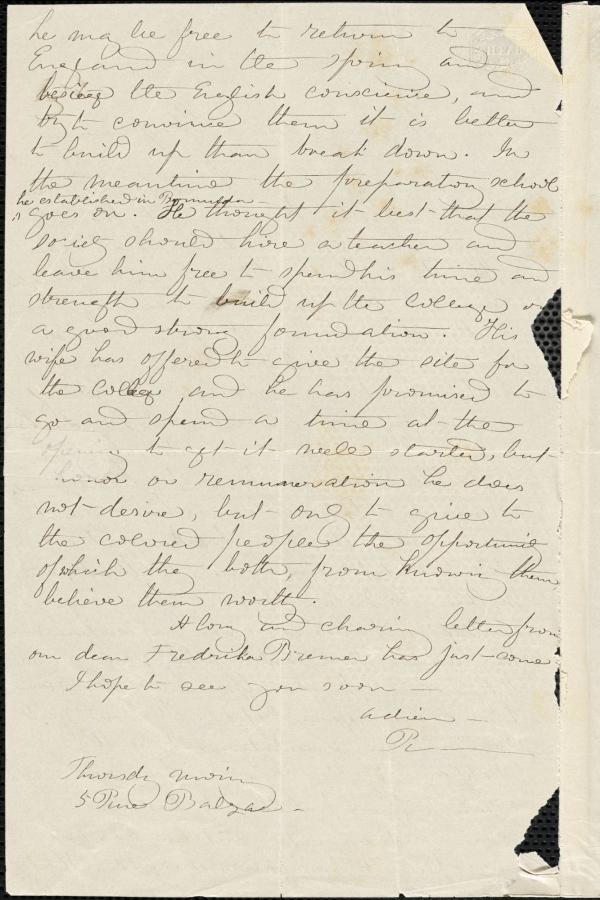 he may be free to return to
England in the spring and
besiege the English conscience, and
try to convince them it is better
to build up than break down. In
the meantime the preparatory school
he established in Bermuda
goes on. He thought it best that the
society should hire a teacher and
leave him free to spend his time and
strength to build up the College on
a good strong foundation. His
wife has offered to give the site for
the College and he has promised to
go and spend a time at the
opening to get it well started, but
honor or remuneration he does
not desire, but only to give to
the colored people the opportunity
of which they both, from knowing them
believe them worthy.
A long and charming letter from
our dear Fredrika Bremer has just come
I hope to see you soon —
adieu —
Thursday morning
5 Rue Balzac —